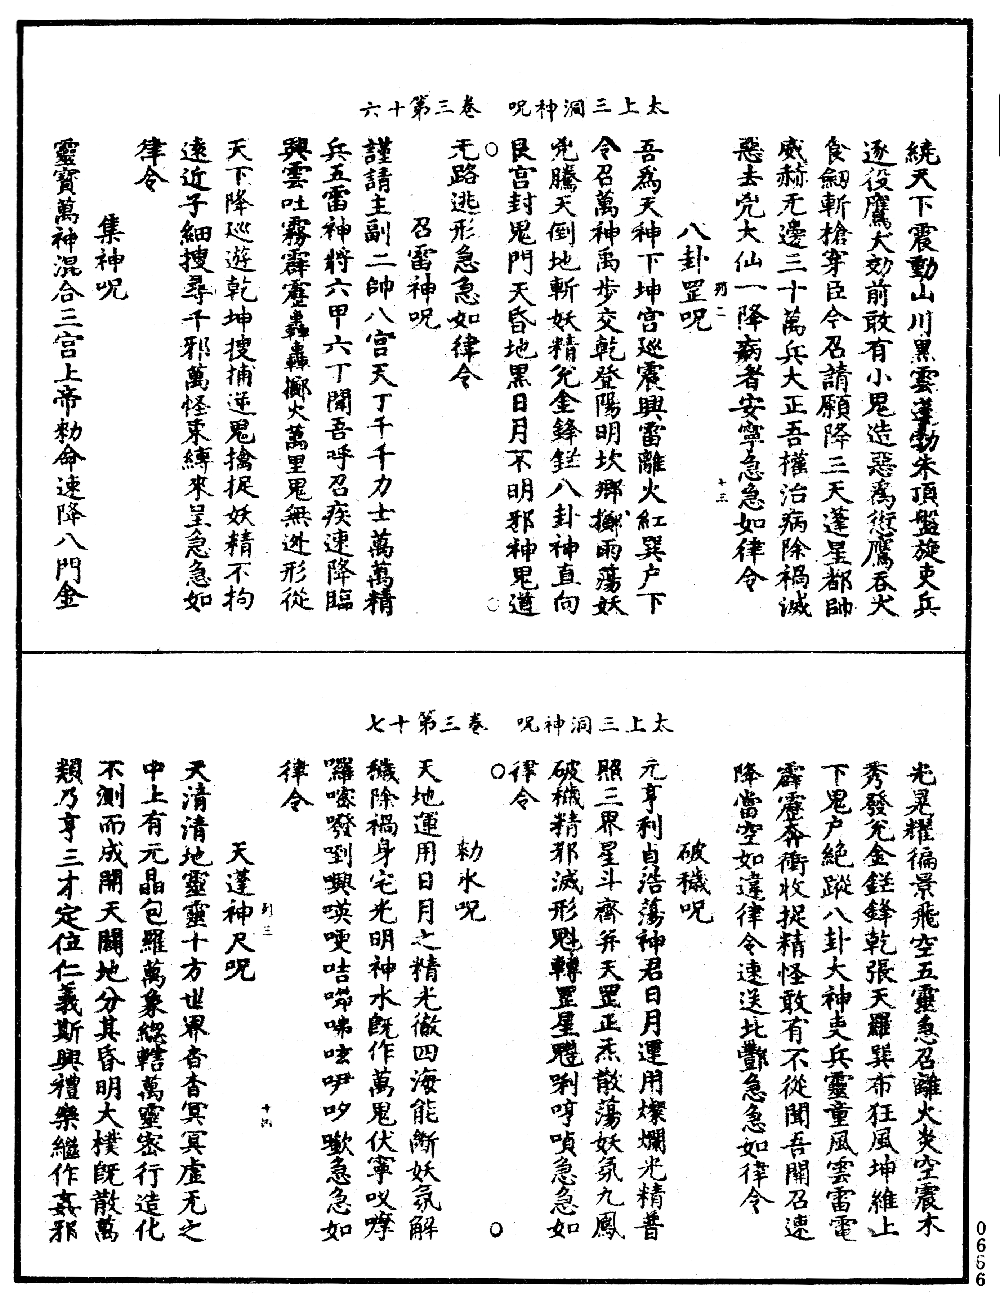 太上三洞神呪　卷三第十六
繞天下震動山川黑雲蓬勃朱頂盤旋吏兵
逐役鷹犬効前敢有小鬼造惡為衒鷹吞犬
食劒斬槍穿臣今召請願降三天蓬星都帥
威赫无邊三十萬兵大正吾權治病除禍滅
惡去兇大仙一降病者安寧急急如律令
八卦罡呪
列二
十三
吾為天神下坤宮巡震興雷離火紅巽户下
令召萬神禹步交乾登陽明坎鄉擲雨蕩妖
兇騰天倒地斬妖精兊金鋒鎈八卦神直向
艮宮封鬼門天昏地黑日月不明邪神鬼道
无路逃形急急如律令
召雷神呪
謹請主副二帥八宮天丁千千力士萬萬精
兵五雷神將六甲六丁聞吾呼召疾速降臨
興雲吐霧霹靂轟轟擲火萬里鬼無迯形從
天下降巡遊乾坤搜捕逆鬼擒捉妖精不拘
遠近子細搜尋千邪萬怪束縛來呈急急如
律令
集神呪
靈寶萬神混合三宮上帝勑命速降八門金
太上三洞神呪　卷三第十七
光晃耀徧景飛空五靈急召離火炎空震木
秀發兊金鎈鋒乾張天羅巽布狂風坤維上
下鬼户絶蹤八卦大神吏兵靈童風雲雷電
霹靂奔衝收捉精怪敢有不從聞吾開召速
降當空如違律令速送北酆急急如律令
破穢呪
元亨利貞浩蕩神君日月運用燦爛光精普
照三界星斗齊并天罡正炁散蕩妖氛九鳳
破穢精邪滅形魁轉罡星䰢唎哼嗩急急如
律令
勑水呪
天地運用日月之精光徹四海能斷妖氛解
穢除禍身宅光明神水旣作萬鬼伏寧㕥嚤
囉㗭噯㘄嚊嘆哽咭㗔㗘呟吚吵嚱急急如
律令
天蓬神尺呪
列三
十四
天清清地靈靈十方世界杳杳冥冥虛无之
中上有元晶包羅萬象緫轄萬靈密行造化
不測而成開天闢地分其昏明大樸旣散萬
類乃亨三才定位仁義斯興禮樂繼作姦邪
0666